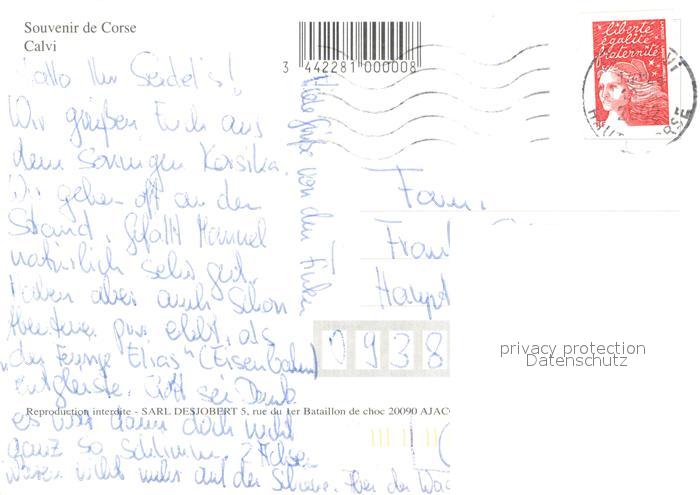 Souvenir de Corse
Calvi
Hallo Ihr Seidel's!
Wir grüßen Euch aus
dem sonnigen Korsika.
Wir gehen oft an den
Strand, gefällt Manuel
natürlich sehr gut.
Haben aber auch schon
Abenteuer pur erlebt, als
"der feurige Elias" (Eisenbahn)
entgleiste. Gott sei Dank
es war dann doch nicht
ganz so schlimm, 2 Achsen
waren nicht mehr auf der Schiene. Aber der
Viele Grüße von den
3 442281 000008
liberté
égalité
fraternité
HAUTE CORSE
Fam.
Frank
Haupt
0938
privacy protection
Datenschutz
Reproduction interdite - SARL DESJOBERT 5, rue du 1er Bataillon de choc 20090 AJAC